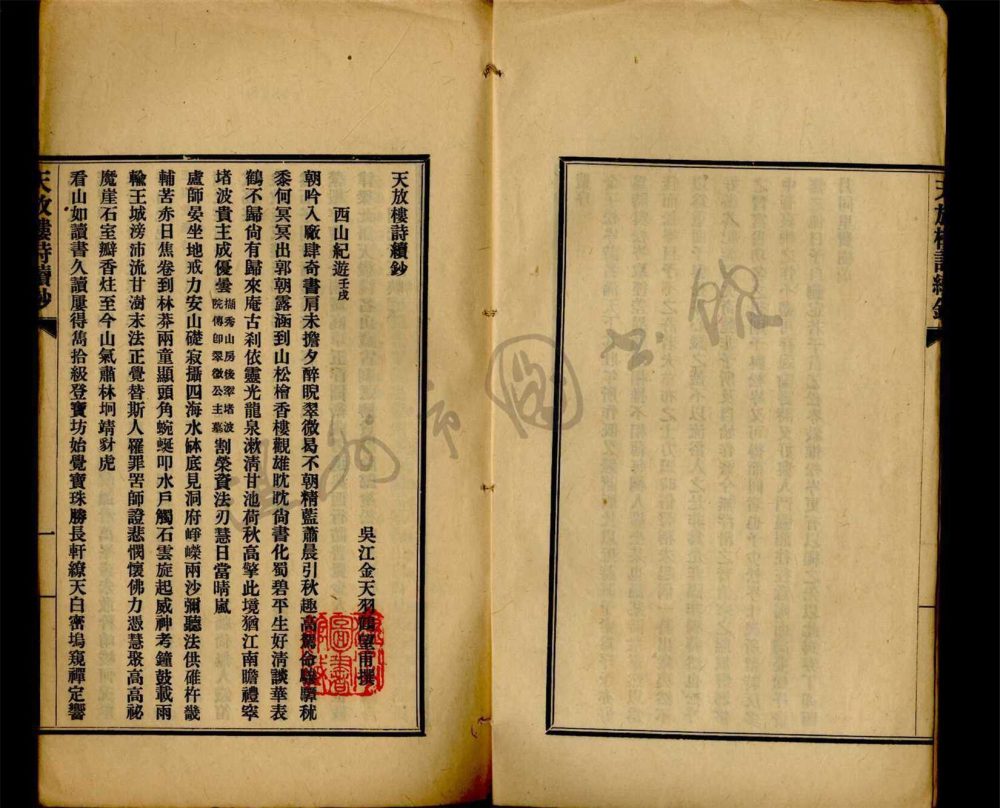 天放樓詩續鈔
天放樓詩續鈔
吳江金天羽鶴望甫撰
西山紀遊壬戌
朝吟入廠肆奇書肩未擔夕醉睨翠微曷不朝精藍蕭晨引秋趣高駕命驂驔秫
黍何冥冥出郭朝露涵到山松檜香樓觀雄眈眈尙書化蜀碧平生好清談華表
鶴不歸尙有歸來庵古刹依靈光龍泉漱清甘池荷秋高擎此境猶江南瞻禮窣
堵波貴主成優曇擷秀山房後窣堵波院傳卽翠微公主墓割榮資法刃慧日當晴嵐
盧師晏坐地戒力安山礎寂攝四海水缽底見洞府崢嶸兩沙彌聽法供碓杵畿
輔苦赤日焦卷到林莽兩童顯頭角蜿蜒叩水戶觸石雲旋起威神考鐘鼓載雨
輪王城滂沛流甘澍末法正覺替斯人罹罪罟師證悲憫懷佛力憑慧聚高高祕
魔崖石室瓣香炷至今山氣肅林坰靖豺虎
看山如讀書久讀屢得雋拾級登寶坊始覺寶珠勝長軒繚天白密塢窺禪定響
天放樓詩續鈔
一